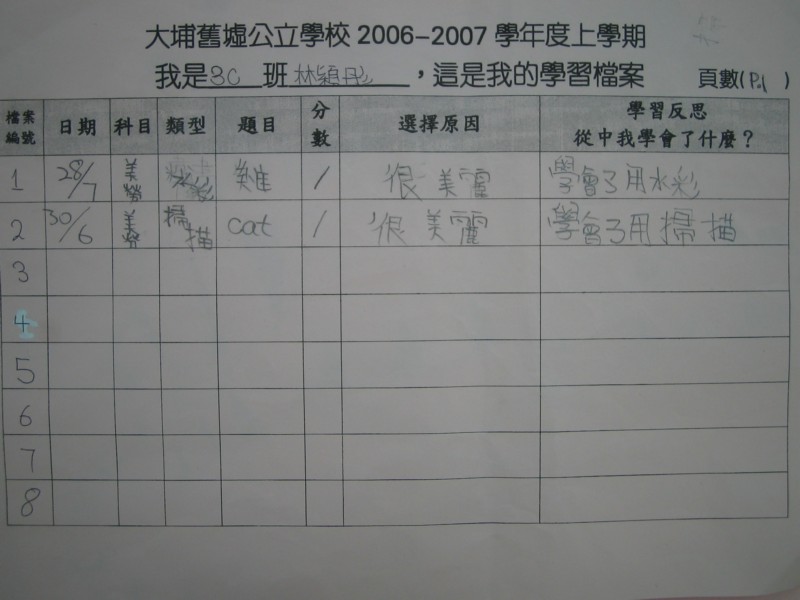 大埔舊墟公立學校 2006-2007 學年度上學期
我是3C班林穎彤，這是我的學習檔案 頁數(P.1)
檔案編號 日期 科目 類型 題目 分數 選擇原因 學習反思 從中我學會了什麼？
1 28/7 美勞 水彩 雞 / 很美麗 學會了用水彩
2 30/6 美勞 掃描 cat / 很美麗 學會了用掃描
3
4
5
6
7
8